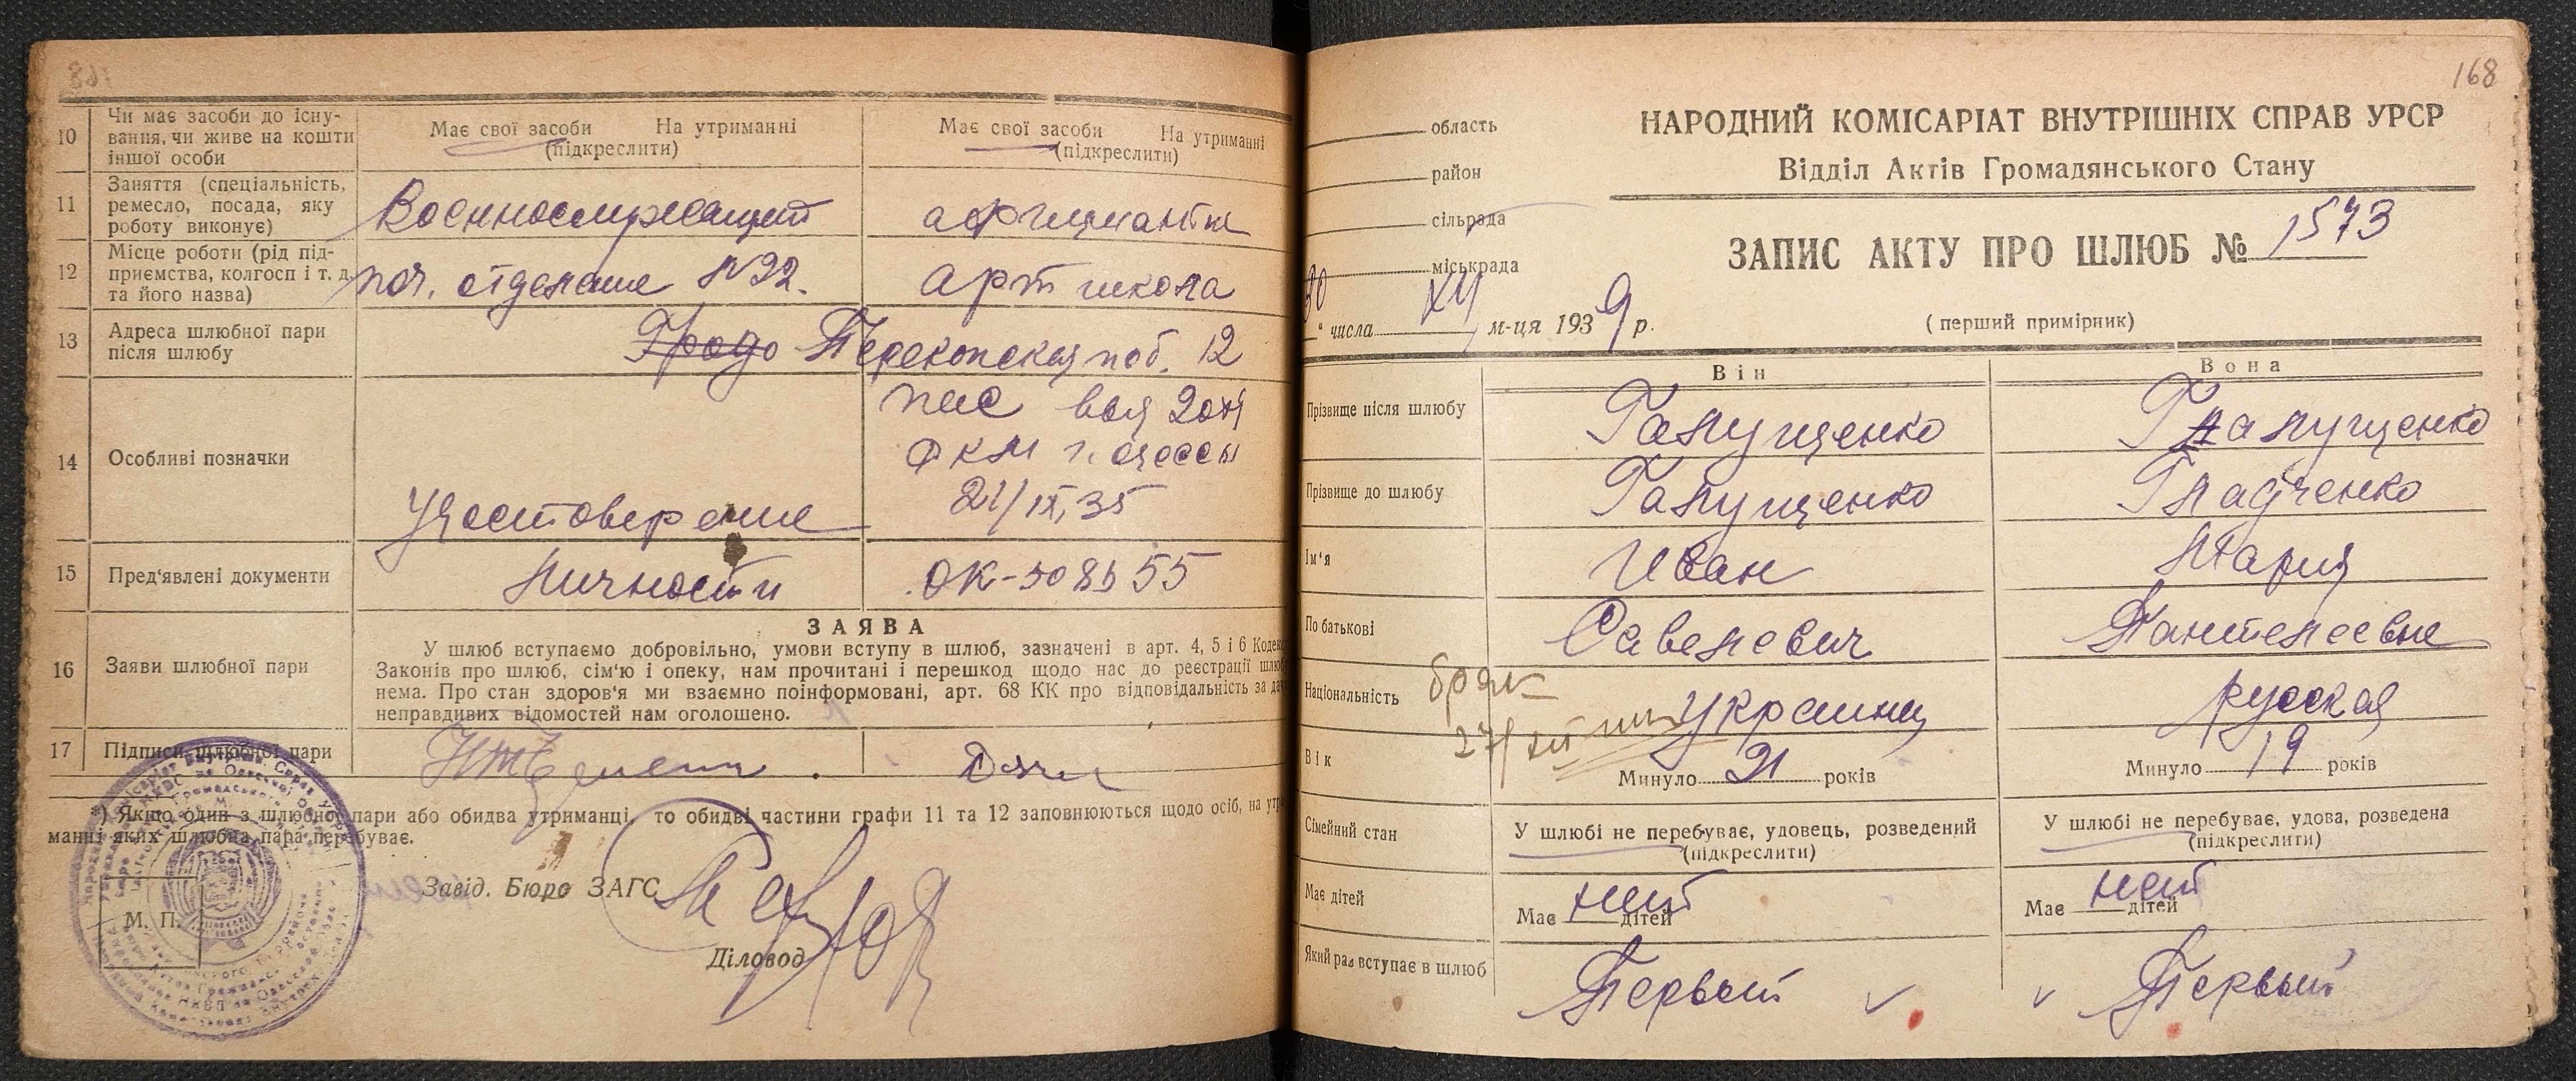 10
Чи має засоби до існу-
вання, чи живе на кошти
іншої особи
Має свої засоби На утриманні
(підкреслити)
Має свої засоби На утриманні
(підкреслити)
11
Заняття (спеціальність,
ремесло, посада, яку
роботу виконує)
Военнослужащий
12
Місце роботи (рід під-
приємства, колгосп і т. д.
та його назва)
поч. отделение №22.
арт школа
13
Адреса шлюбної пари
після шлюбу
Перекопской поб. 12
14
Особливі позначки
пас выд 20
ФКМ г. Одессы
21/IX, 35
15
Пред'явлені документи
Удостоверение
личности
ОК-508555
16
Заяви шлюбної пари
ЗАЯВА
У шлюб вступаємо добровільно, умови вступу в шлюб, зазначені в арт. 4, 5 і 6 Кодек
Законів про шлюб, сім'ю і опеку, нам прочитані і перешкод щодо нас до реєстрації шлю
нема. Про стан здоров'я ми взаємно поінформовані, арт. 68 КК про відповідальність за да
неправдивих відомостей нам оголошено.
17
Підписи шлюбної пари
*) Якщо один з шлюбної пари або обидва утриманці, то обидві частини графи 11 та 12 заповнюються щодо осіб, на утр
манні яких шлюбна пара перебуває.
Завід. Бюро ЗАГС
М. П.
Діловод
168
область
район
сільрада
міськрада
НАРОДНИЙ КОМІСАРІАТ ВНУТРІШНІХ СПРАВ УРСР
Відділ Актів Громадянського Стану
ЗАПИС АКТУ ПРО ШЛЮБ № 1573
30 " числа XII м-ця 1939 р.
(перший примірник)
Він
Вона
Прізвище після шлюбу
Галущенко
Галущенко
Прізвище до шлюбу
Галущенко
Гладченко
Ім'я
Иван
Мария
По батькові
Савелевич
Пантелеевна
Національність
украинец
русская
брак
Вік
Минуло 21 років
Минуло 19 років
Сімейний стан
У шлюбі не перебуває, удовець, розведений
(підкреслити)
У шлюбі не перебуває, удова, розведена
(підкреслити)
Має дітей
Має нет дітей
Має нет дітей
Який раз вступає в шлюб
Первый
Первый